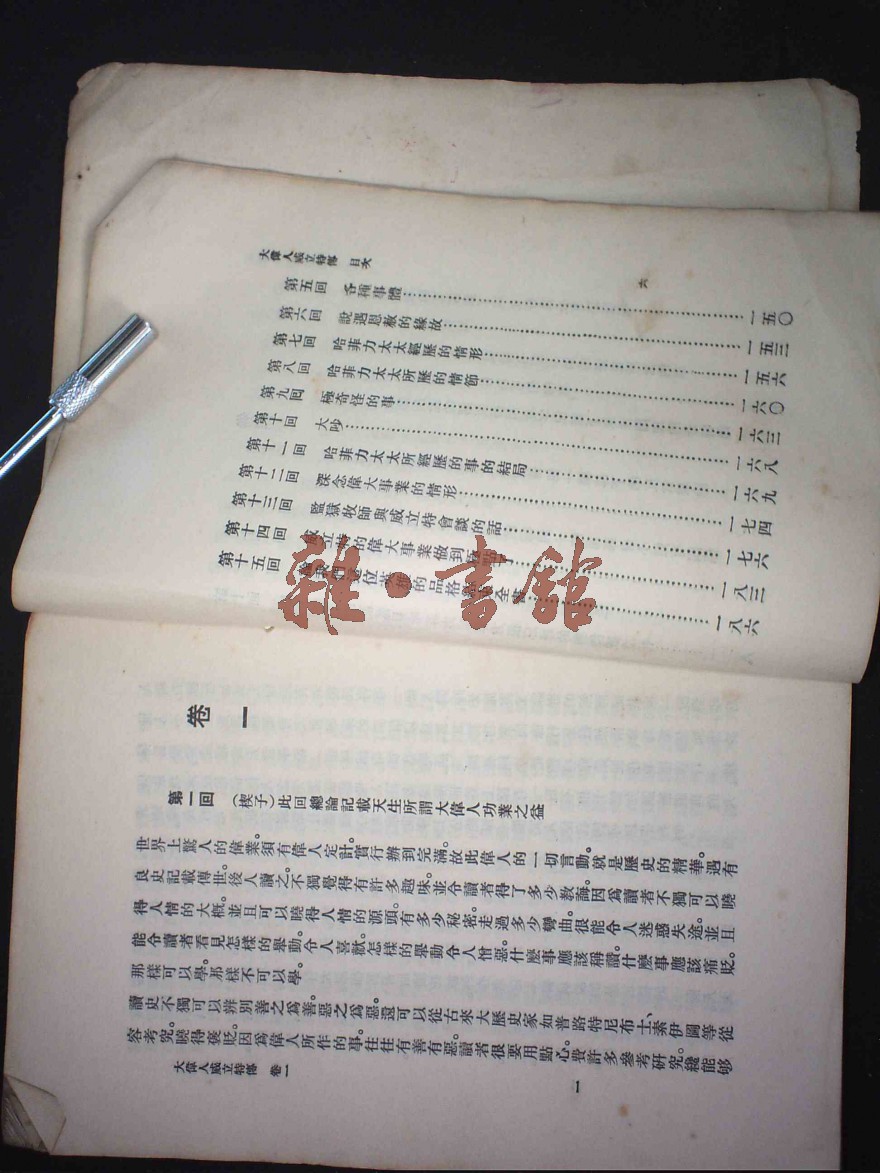 大偉人威立特傳 目次
六
第五回 各種事體……一五〇
第六回 說遇恩赦的緣故……一五三
第七回 哈菲力太太經歷的情形……一五六
第八回 哈菲力太太所歷的情節……一六〇
第九回 極奇怪的事……一六三
第十回 大吵……一六八
第十一回 哈菲力太太所經歷的事的結局……一六九
第十二回 深念偉大事業的情形……一七四
第十三回 監獄牧師與威立特會談的話……一七六
第十四回 威立特的偉大事業做到……一八二
第十五回 位英雄的品格……一八六
雜·書館
卷一
第一回 (楔子)此回總論記載天生所謂大偉人功業之益
世界上驚人的偉業。須有偉人定計。實行辦到完滿。故此偉人的一切言動。就是歷史的精華。遇有
良史記載傳世。後人讀之。不獨覺得有許多趣味。並令讀者得了多少教誨。因為讀者不獨可以曉
得人情的大概。並且可以曉得人情的源頭。有多少秘密。走過多少彎曲。很能令人迷惑失途。並且
能令讀者看見怎樣的舉動。令人喜歡。怎樣的舉動令人憎惡。什麼事應該稱讚。什麼事應該痛貶。
那樣可以學。那樣不可以學。
讀史不獨可以辨別善之為善。惡之為惡。還可以從古來大歷史家如普路特尼布士、素伊圖等從
容考究。曉得褒貶。因為偉人所作的事。往往有善有惡。讀者很要用點心。費許多參考研究。纔能够
大偉人威立特傳 卷一
一